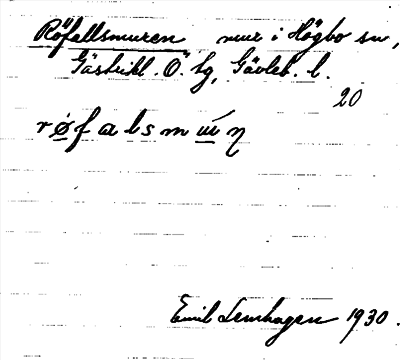 Röfallsmuren mur i Högbo sn,
Gästrikl. Ö. tg, Gävleb. l.
20
røfalsmuṅ
Emil Lenhagen 1930.